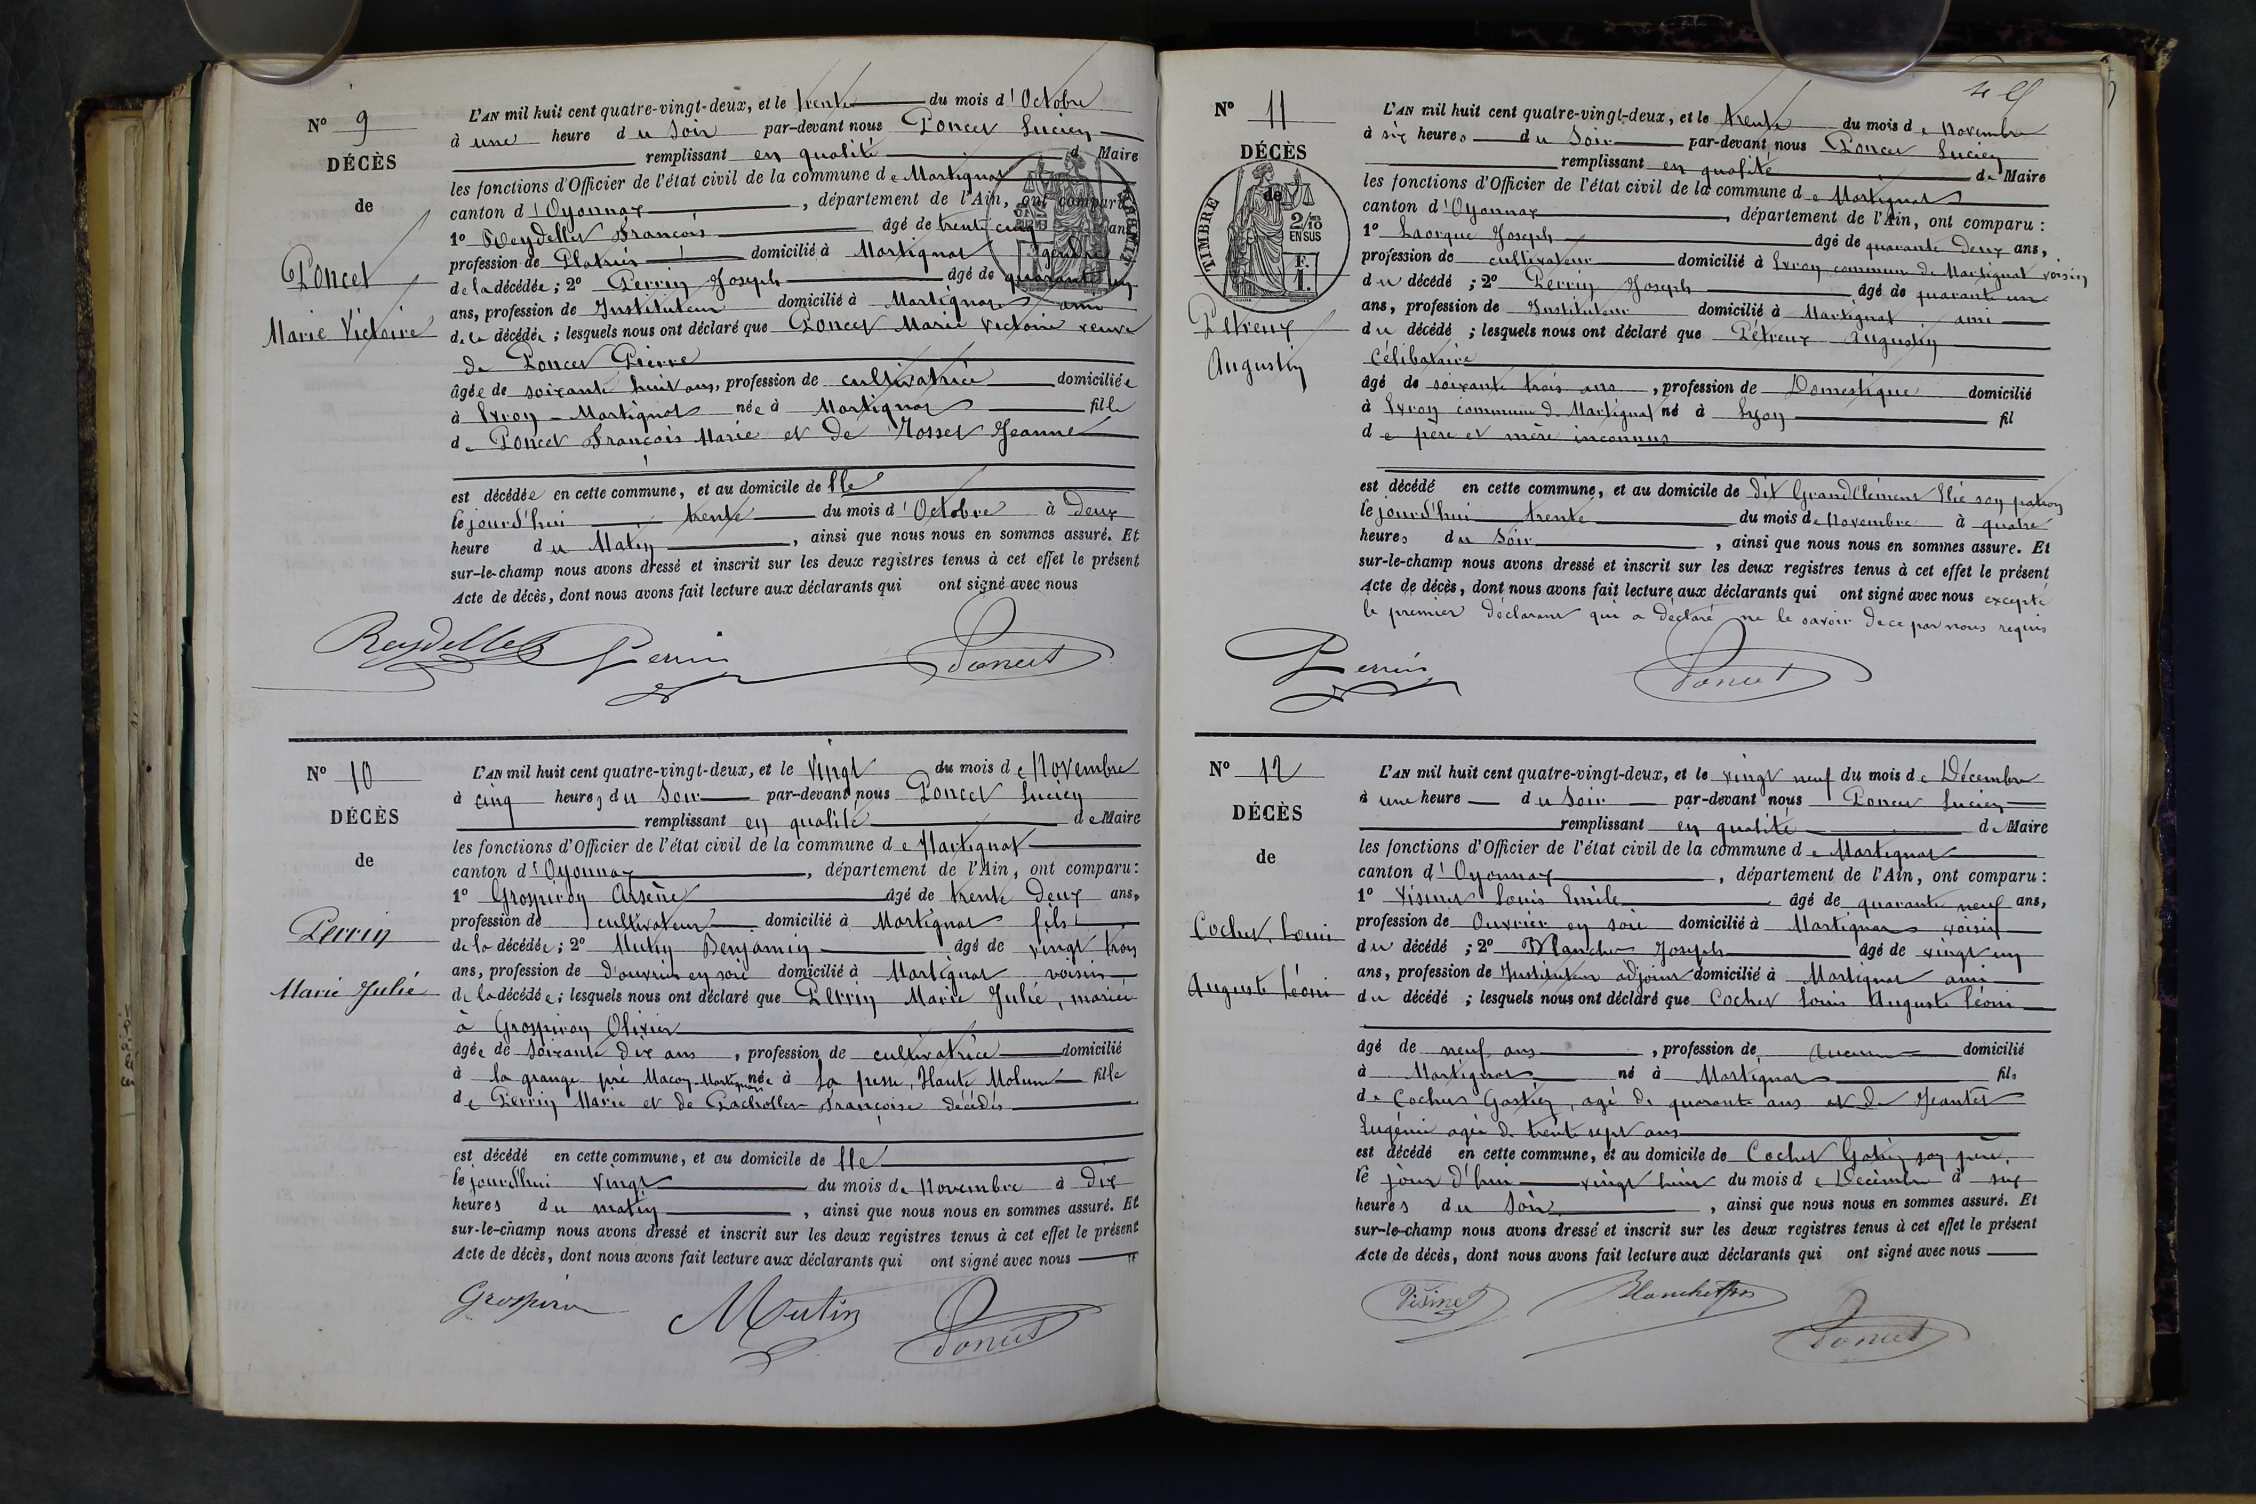 N° 9
DÉCÈS
de
Poncet
Marie Victoire
L'AN mil huit cent quatre-vingt-deux, et le trente du mois d'Octobre
à une heure du Soir par-devant nous Poncet Lucien
remplissant en qualité de Maire
les fonctions d'Officier de l'état civil de la commune de Martignat
canton d'Oyonnax, département de l'Ain, ont comparu
1° Reydellet François âgé de trente cinq ans
profession de Platrier domicilié à Martignat gendre
de la décédée; 2° Perrin Joseph âgé de quarante un
ans, profession de Instituteur domicilié à Martignat ami
de la décédée; lesquels nous ont déclaré que Poncet Marie Victoire veuve
de Poncet Pierre
âgée de soixante huit ans, profession de cultivatrice domiciliée
à Evron-Martignat née à Martignat fille
de Poncet François Marie et de Josset Jeanne
est décédée en cette commune, et au domicile de Elle
le jourd'hui trente du mois d'Octobre à Deux
heure du Matin, ainsi que nous nous en sommes assuré. Et
sur-le-champ nous avons dressé et inscrit sur les deux registres tenus à cet effet le présent
Acte de décès, dont nous avons fait lecture aux déclarants qui ont signé avec nous
Reydellet Perrin Poncet
N° 10
DÉCÈS
de
Perrin
Marie Julie
L'AN mil huit cent quatre-vingt-deux, et le Vingt du mois de Novembre
à cinq heures du Soir par-devant nous Poncet Lucien
remplissant en qualité de Maire
les fonctions d'Officier de l'état civil de la commune de Martignat
canton d'Oyonnax, département de l'Ain, ont comparu:
1° Grospiron Arsène âgé de trente Deux ans,
profession de cultivateur domicilié à Martignat fils
de la décédée; 2° Mutin Benjamin âgé de vingt trois
ans, profession de d'ouvrier en soie domicilié à Martignat voisin
de la décédée; lesquels nous ont déclaré que Perrin Marie Julie, mariée
à Grospiron Olivier
âgée de Soixante Dix ans, profession de cultivatrice domicilié
à la grange pré Macon Martignat née à La pesse, Haute Molune fille
de Perrin Marie et de Françoise décédés
est décédé en cette commune, et au domicile de Elle
le jourd'hui vingt du mois de Novembre à Dix
heures du matin, ainsi que nous nous en sommes assuré. Et
sur-le-champ nous avons dressé et inscrit sur les deux registres tenus à cet effet le présent
Acte de décès, dont nous avons fait lecture aux déclarants qui ont signé avec nous
Grospiron Mutin Poncet
N° 11
DÉCÈS
de
TIMBRE
2/10
EN SUS
F.
1.
Pétreux
Augustin
L'AN mil huit cent quatre-vingt-deux, et le trente du mois de Novembre
à six heures du Soir par-devant nous Poncet Lucien
remplissant en qualité de Maire
les fonctions d'Officier de l'état civil de la commune de Martignat
canton d'Oyonnax, département de l'Ain, ont comparu:
1° Lacroque Joseph âgé de quarante Deux ans,
profession de cultivateur domicilié à Evron commune de Martignat voisin
du décédé; 2° Perrin Joseph âgé de quarante un
ans, profession de Instituteur domicilié à Martignat ami
du décédé; lesquels nous ont déclaré que Pétreux Augustin
Célibataire
âgé de soixante trois ans, profession de Domestique domicilié
à Evron commune de Martignat né à Lyon fil
de père et mère inconnus
est décédé en cette commune, et au domicile de dit GrandClément Elie son patron
le jourd'hui trente du mois de Novembre à quatre
heures du Soir, ainsi que nous nous en sommes assure. Et
sur-le-champ nous avons dressé et inscrit sur les deux registres tenus à cet effet le présent
Acte de décès, dont nous avons fait lecture aux déclarants qui ont signé avec nous excepté
le premier déclarant qui a déclaré ne le savoir de ce par nous requis
Perrin Poncet
N° 12
DÉCÈS
de
Cochet Louis
Auguste Léoni
L'AN mil huit cent quatre-vingt-deux, et le vingt neuf du mois de Décembre
à une heure du Soir par-devant nous Poncet Lucien
remplissant en qualité de Maire
les fonctions d'Officier de l'état civil de la commune de Martignat
canton d'Oyonnax, département de l'Ain, ont comparu:
1° Visinet Louis Emile âgé de quarante neuf ans,
profession de Ouvrier en soie domicilié à Martignat voisin
du décédé; 2° Blanchet Joseph âgé de vingt un
ans, profession de Instituteur adjoint domicilié à Martignat ami
du décédé; lesquels nous ont déclaré que Cochet Louis Auguste Léoni
âgé de neuf ans, profession de Aucune domicilié
à Martignat né à Martignat fils
de Cochet Gatien, agé de quarante ans et de Jeantet
Eugénie agée de trente sept ans
est décédé en cette commune, et au domicile de Cochet Gatien son père,
le jour d'hui vingt huit du mois de Décembre à six
heures du Soir, ainsi que nous nous en sommes assuré. Et
sur-le-champ nous avons dressé et inscrit sur les deux registres tenus à cet effet le présent
Acte de décès, dont nous avons fait lecture aux déclarants qui ont signé avec nous
Visinet Blanchet Poncet